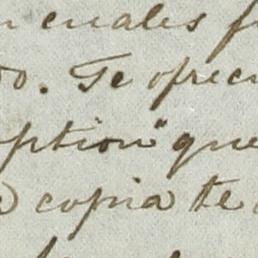 n cuales f
so. Te ofrec
ption" que
copia te